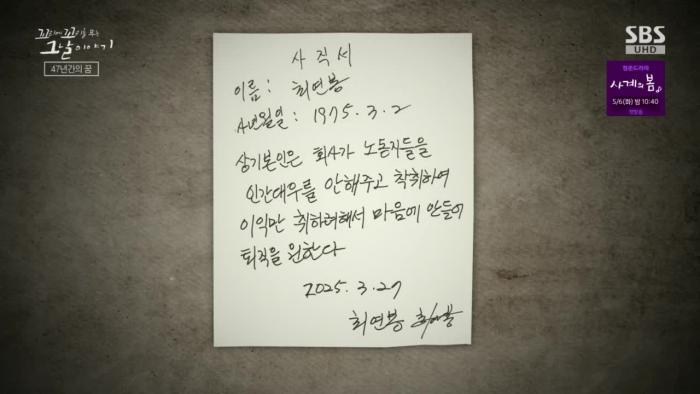 꼬리에 꼬리를 무는
그날 이야기
47년간의 꿈
SBS
UHD
청춘드라마
사계의 봄
5/6(화) 밤 10:40
첫방송
사직서
이름 : 최연봉
생년월일 : 1975.3.2
상기본인은 회사가 노동자들을
인간대우를 안해주고 착취하여
이익만 취하려해서 마음에 안들어
퇴직을 원한다
2025.3.27
최연봉 최연봉